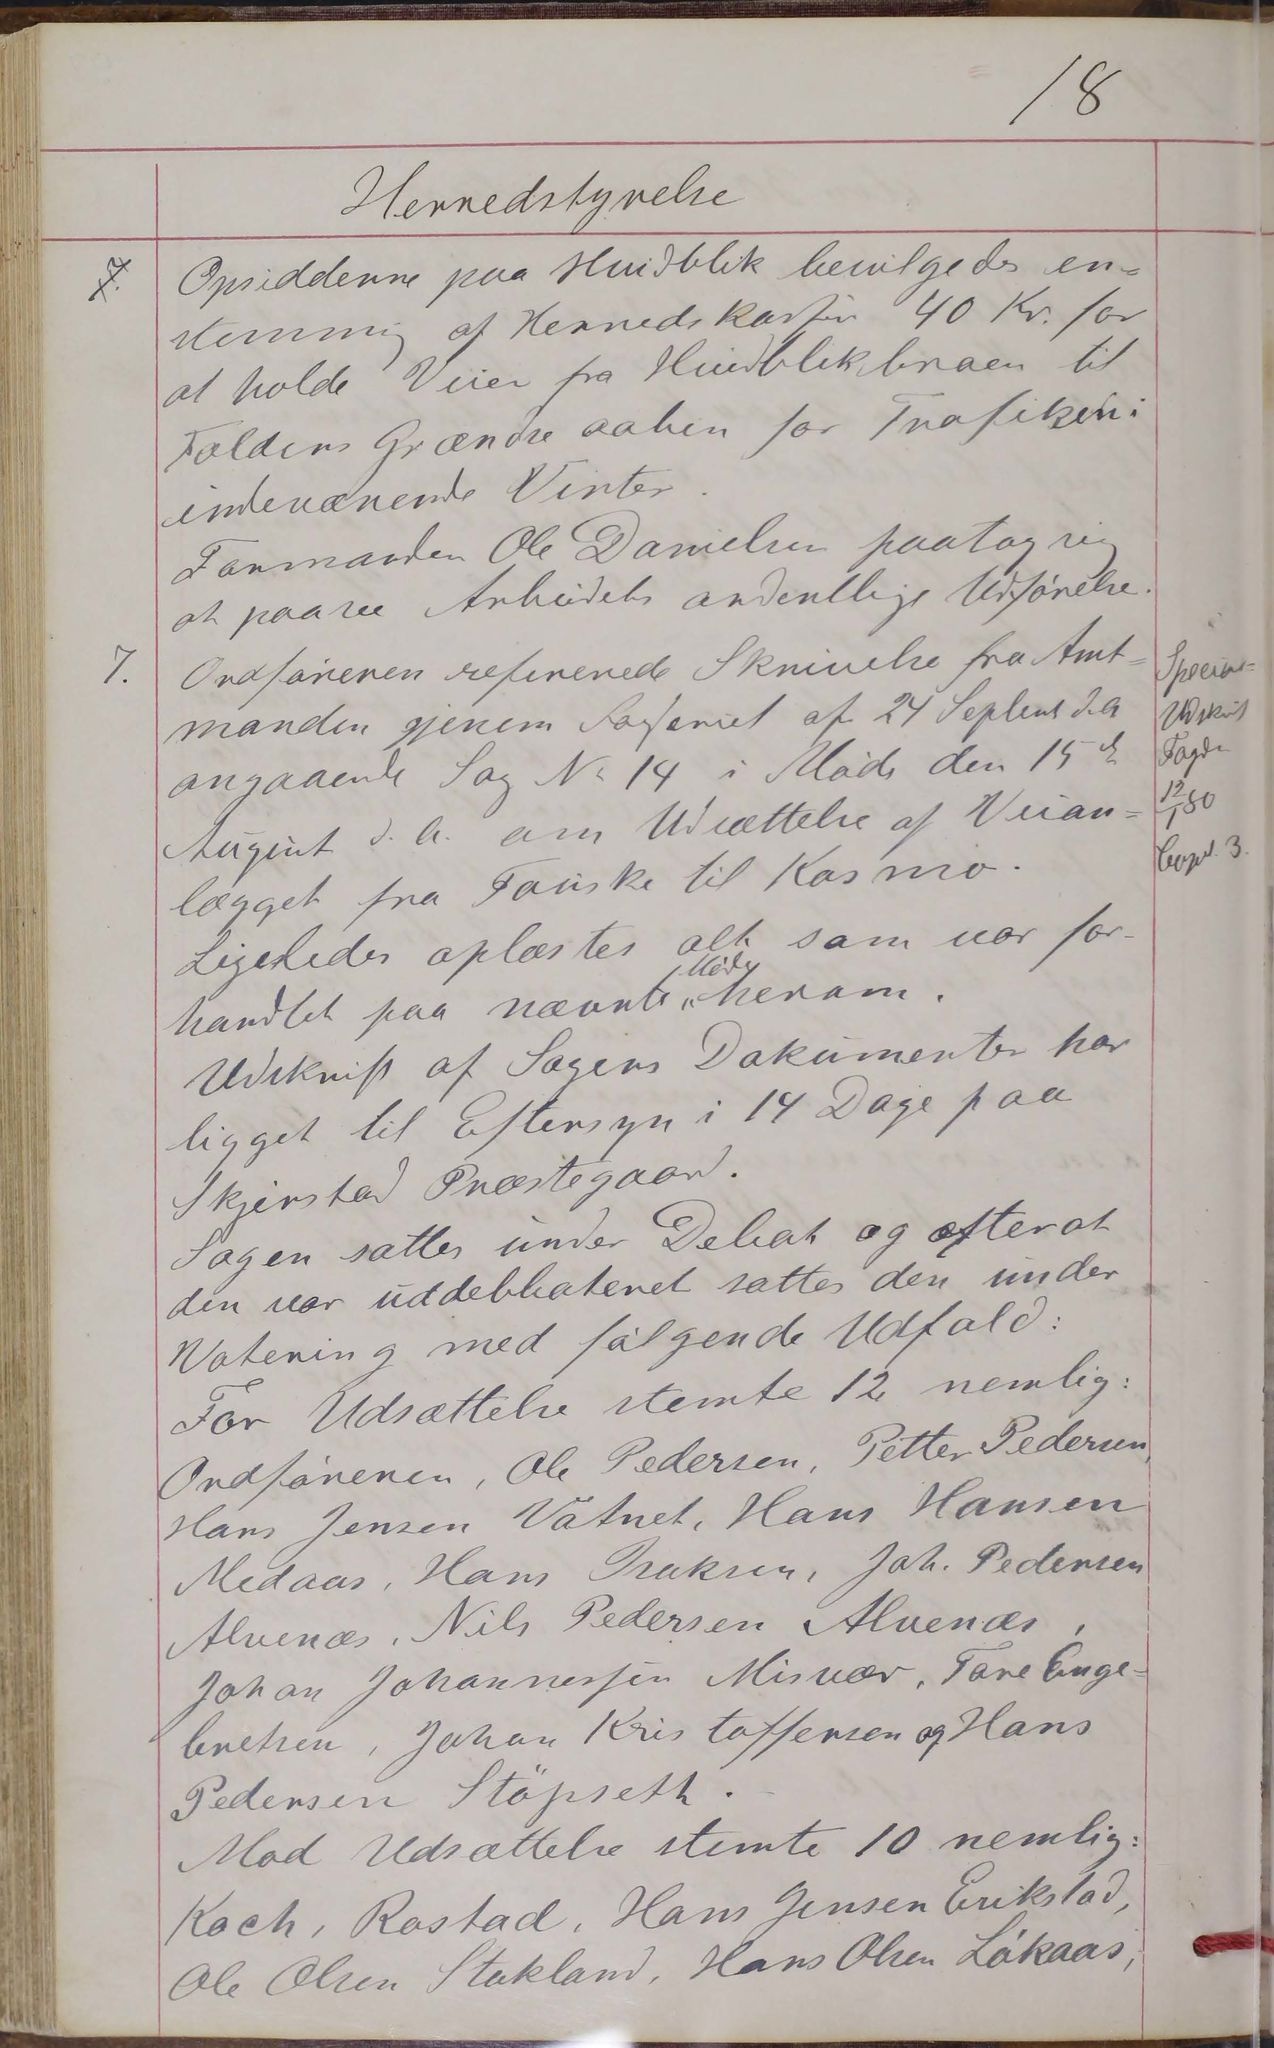 18
Herredstyrelse
7. Opsidderne paa Hvidblik bevilgedes en-
stemmig af Herredskassen 40 Kr. for
at holde Veien fra Hvidblikbraen til
Foldens Grændse aaben for Trafiken i
indeværende Vinter.
Formanden Ole Danielsen paatog sig
at paase Arbeidets ordentlige Udførelse.
7. Ordføreren refererede Skrivelse fra Amt-
manden gjenem Fogderiet af 24 Septemb d. A
angaaende Sag No 14 i Møde den 15de
August d. A. om Udsættelse af Veian-
lægget fra Fauske til Kosmo.
Ligeledes oplæstes alt som var for-
handlet paa nævnte Møde herom.
Udskrift af Sagens Dokumenter har
ligget til Eftersyn i 14 Dage paa
Skjerstad Præstegaard.
Sagen sattes under Debat og efter at
den var uddebbateret sattes den under
Votering med følgende Udfald:
For Udsættelse stemte 12 nemlig:
Ordføreren, Ole Pedersen, Petter Pedersen,
Hans Jensen Vatnet, Hans Hansen
Medaas, Hans Isaksen, Joh. Pedersen
Alvenæs, Nils Pedersen Alvenæs,
Johan Johannessen Misvær, Tore Enge-
bretsen, Johan Kristoffersen og Hans
Pedersen Støpseth.
Mod Udsættelse stemte 10 nemlig:
Koch, Rostad, Hans Jensen Erikstad,
Ole Olsen Stokland, Hans Olsen Løkaas,
Special-
Udskrift
Fogden
12/1 80
Copi. 3.